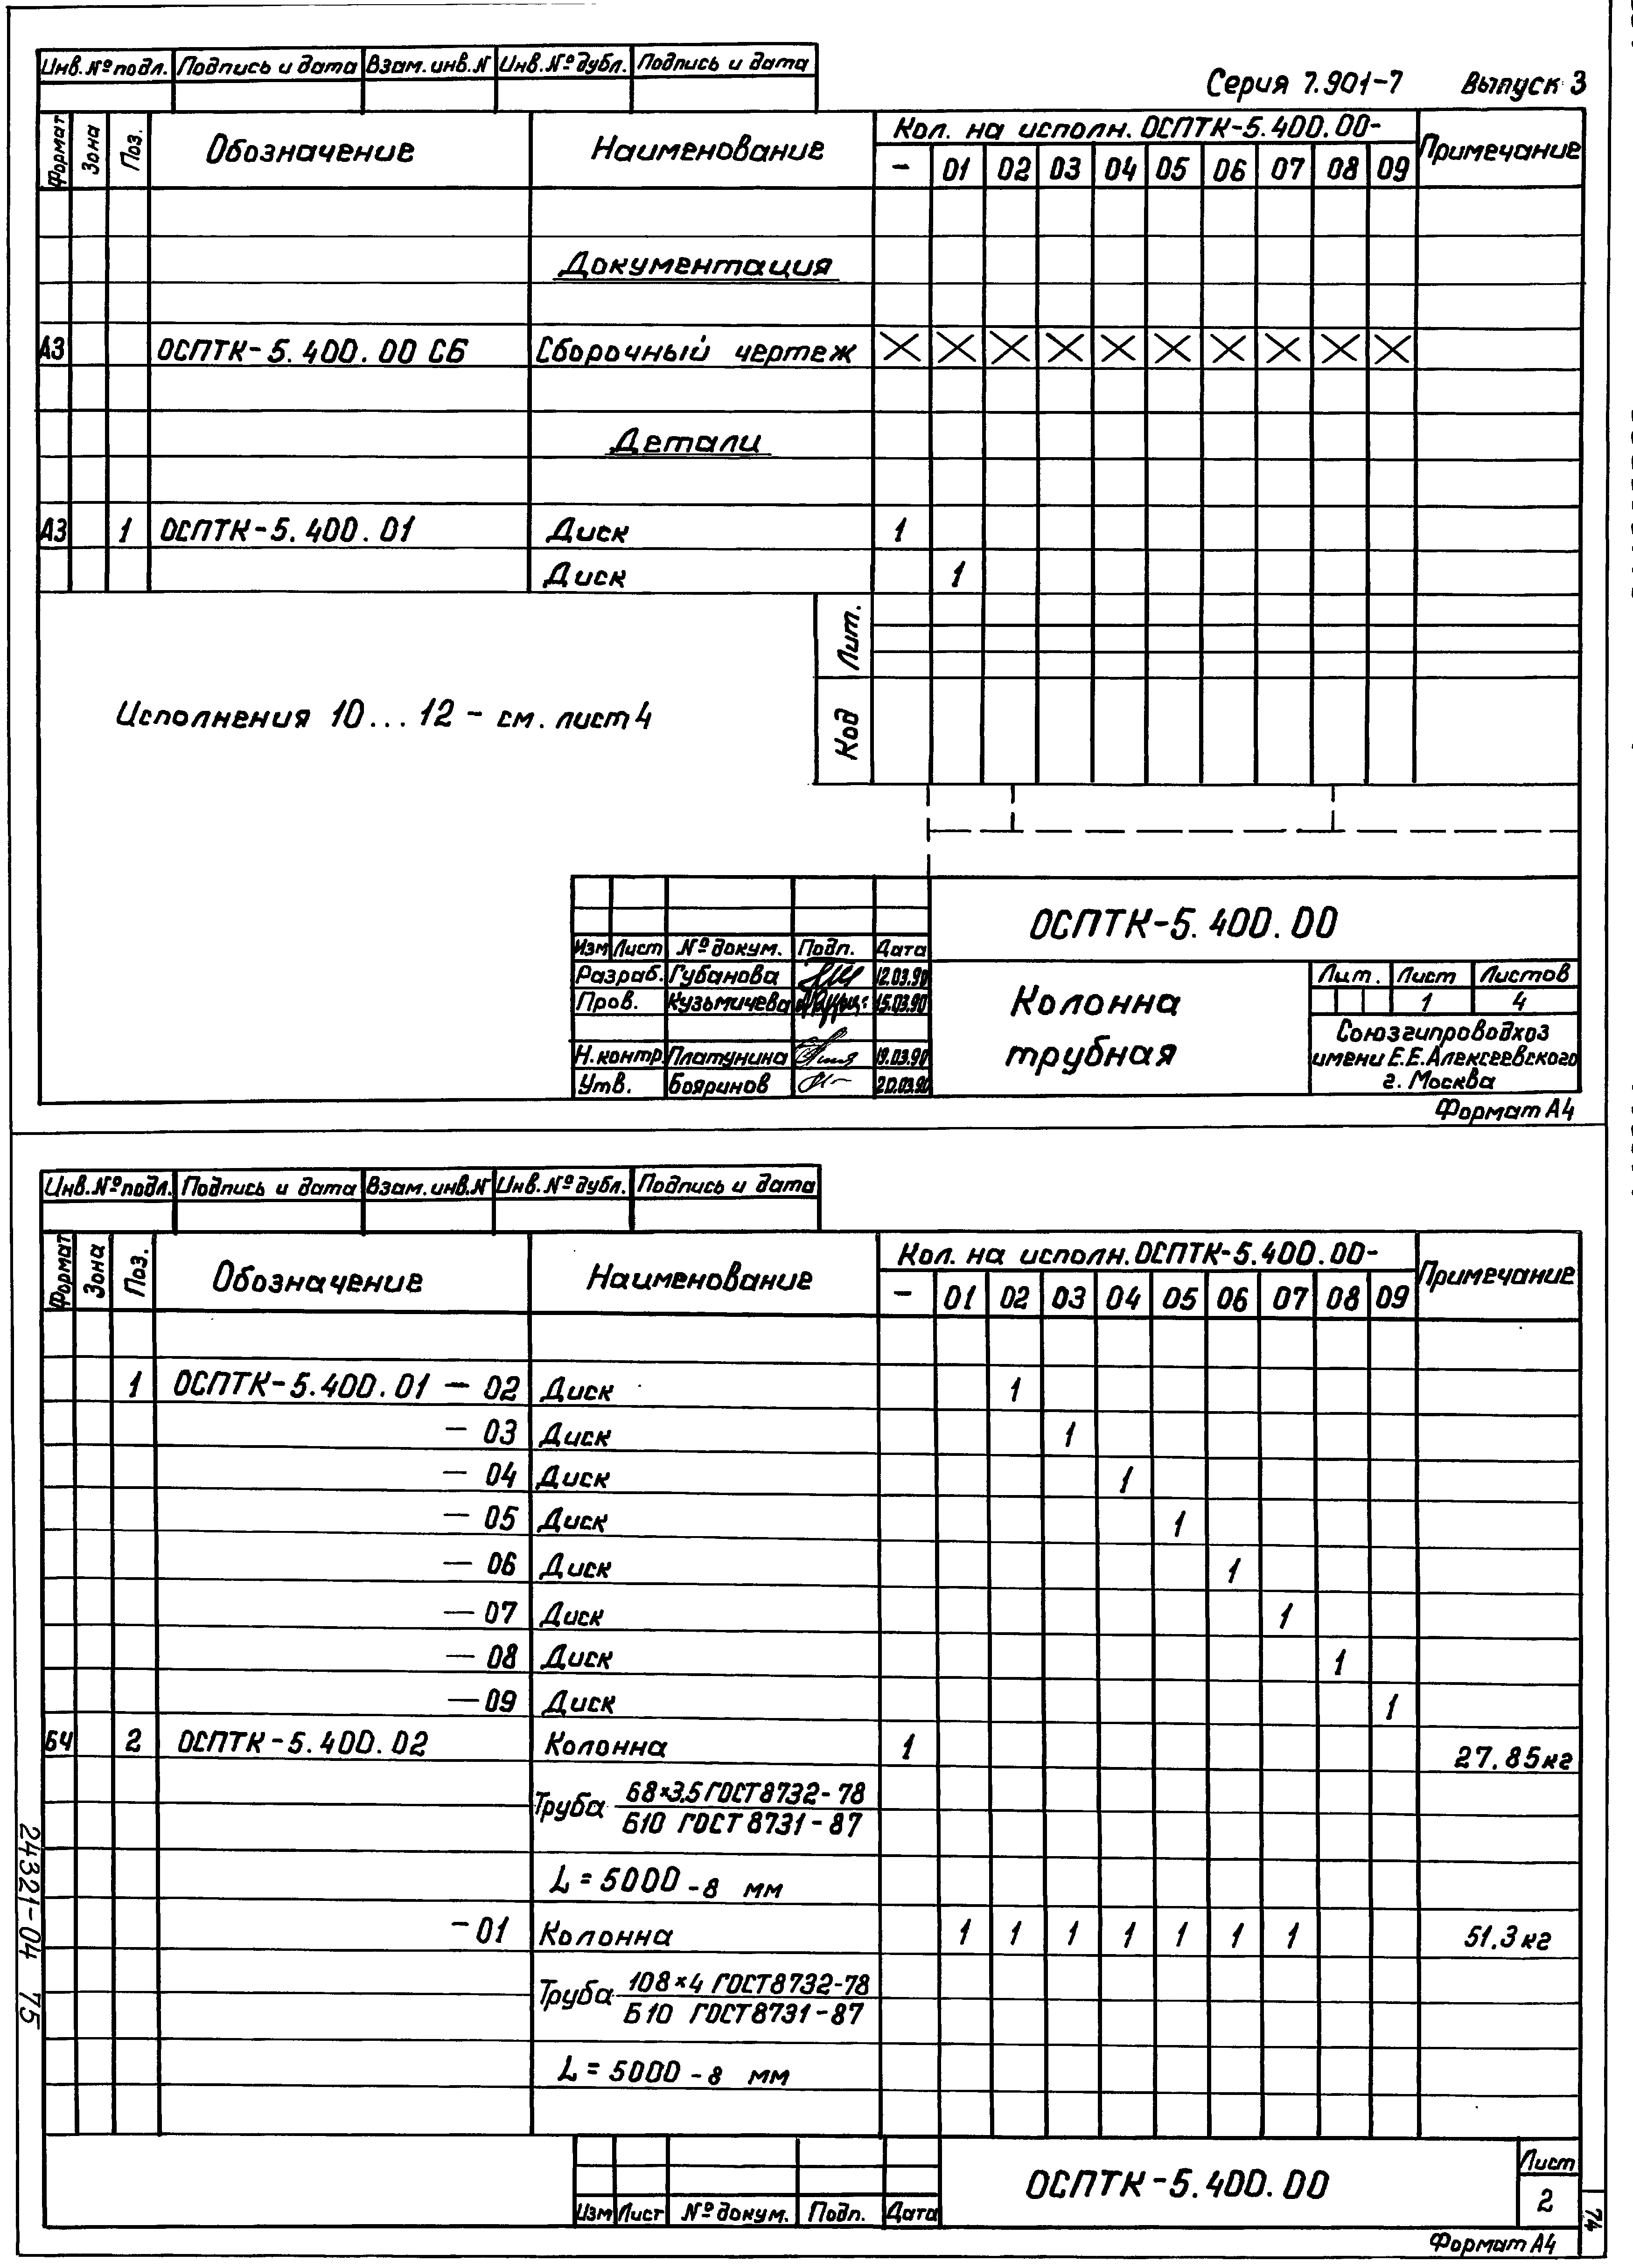 Инв.№подл. Подпись и дата Взам.инв.N Инв.№дубл. Подпись и дата
Серия 7.901-7 Выпуск 3
Формат Зона Поз. Обозначение Наименование Кол. на исполн. ОСПТК-5.400.00- Примечание
- 01 02 03 04 05 06 07 08 09
Документация
А3 ОСПТК-5.400.00 СБ Сборочный чертеж X X X X X X X X X X
Детали
А3 1 ОСПТК-5.400.01 Диск 1
Диск 1
Лит.
Исполнения 10...12 - см. лист 4
Код
ОСПТК-5.400.00
Изм Лист № докум. Подп. Дата
Разраб. Губанова 12.03.90
Пров. Кузьмичева 15.03.90
Н.контр Платунина 19.03.90
Утв. Бояринов 20.03.90
Колонна
трубная
Лит. Лист Листов
1 4
Союзгипроводхоз
имени Е.Е.Алексеевского
г. Москва
Формат А4
Инв.№подл. Подпись и дата Взам.инв.N Инв.№дубл. Подпись и дата
Формат Зона Поз. Обозначение Наименование Кол. на исполн. ОСПТК-5.400.00- Примечание
- 01 02 03 04 05 06 07 08 09
1 ОСПТК-5.400.01 - 02 Диск 1
- 03 Диск 1
- 04 Диск 1
- 05 Диск 1
- 06 Диск 1
- 07 Диск 1
- 08 Диск 1
- 09 Диск 1
БЧ 2 ОСПТК-5.400.02 Колонна 1 27.85кг
Труба 68×3.5 ГОСТ 8732-78
Б10 ГОСТ 8731-87
L = 5000 -8 мм
-01 Колонна 1 1 1 1 1 1 1 51.3 кг
Труба 108×4 ГОСТ 8732-78
Б10 ГОСТ 8731-87
L = 5000 -8 мм
ОСПТК-5.400.00
Изм Лист № докум. Подп. Дата
Лист
2
Формат А4
24321-04 75
74